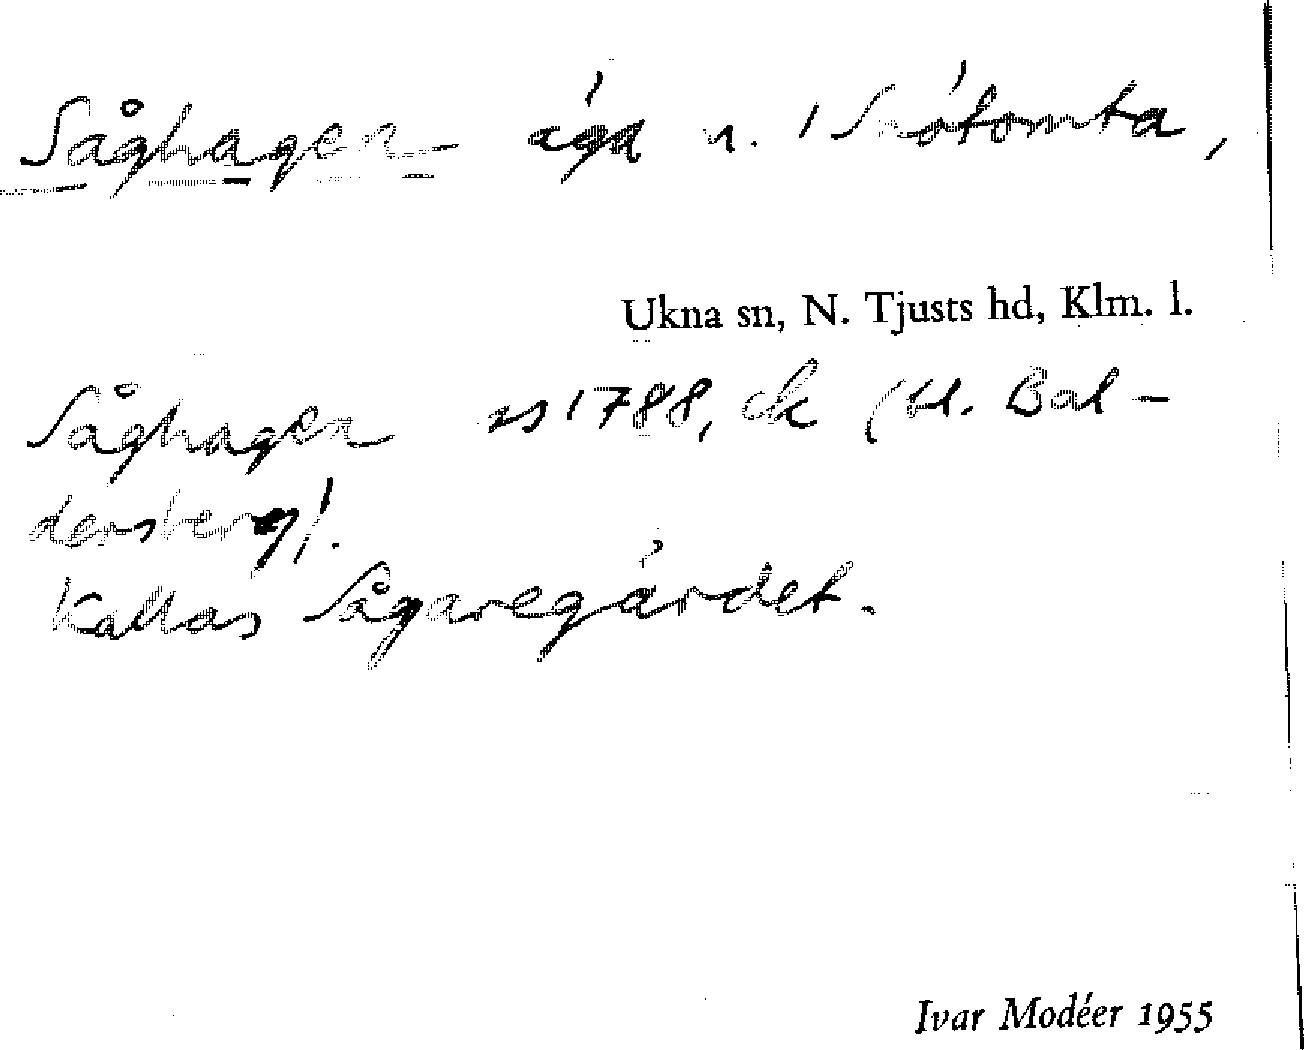 Såghagen äga n. 1 Snötomta,
Ukna sn, N. Tjusts hd, Klm. l.
Såghagen 1788, (bl. Bal-
dersberg).
Kallas Sågaregärdet.
Ivar Modéer 1955